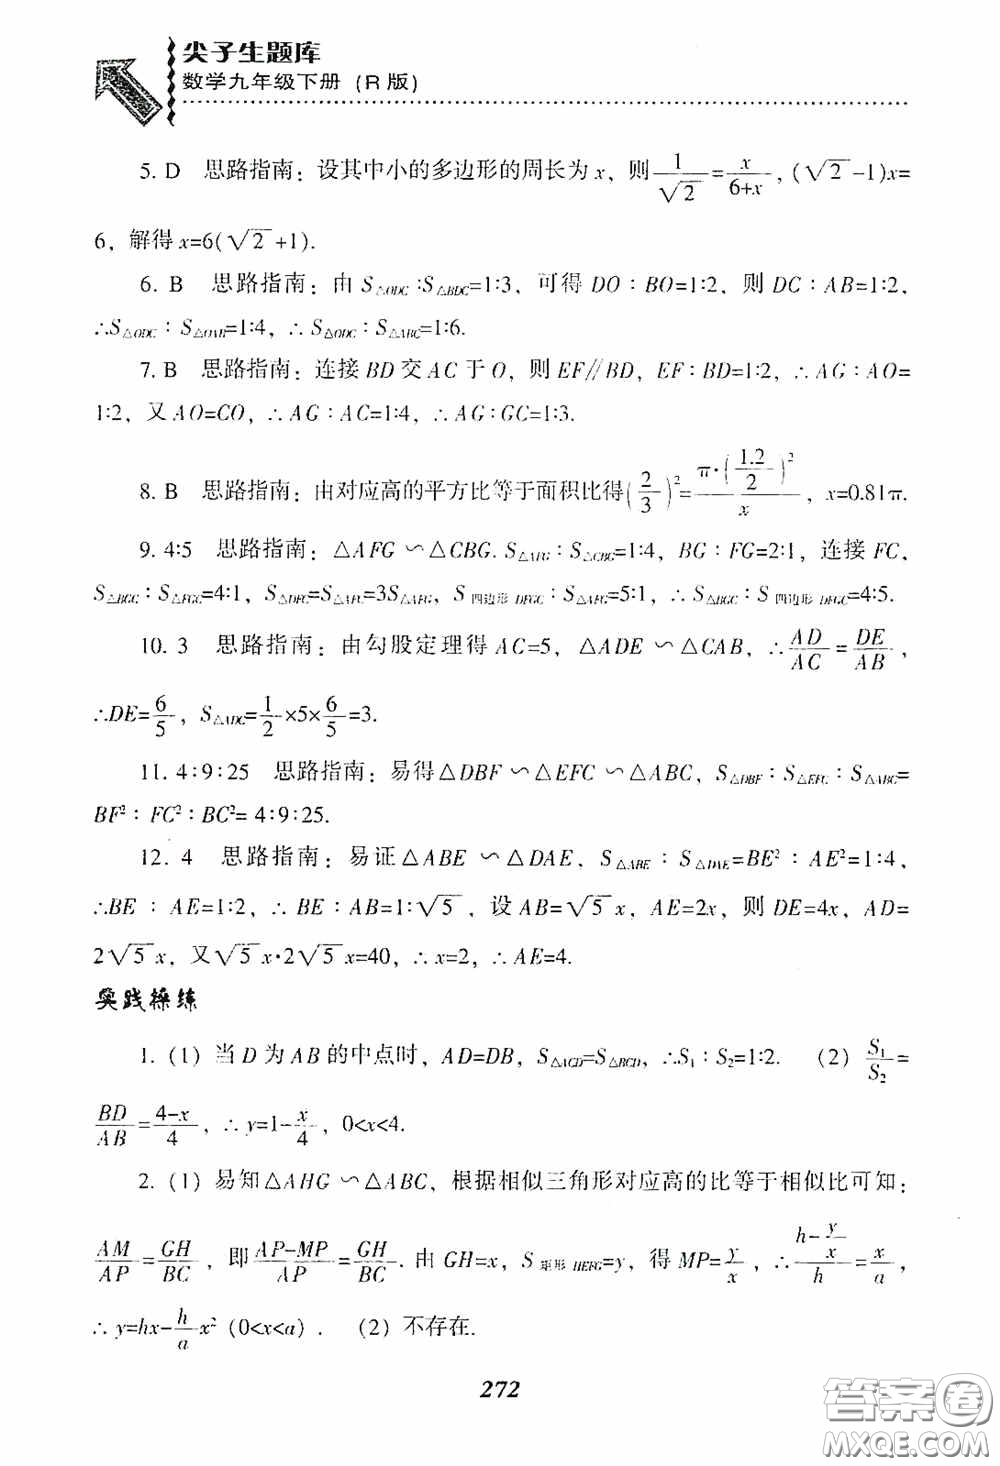 尖子生题库
数学九年级下册（R版）
5. D 思路指南：设其中小的多边形的周长为x，则1/√2=x/(6+x)，(√2-1)x=
6，解得x=6(√2+1).
6. B 思路指南：由S△ODC∶S△BDC=1∶3，可得DO∶BO=1∶2，则DC∶AB=1∶2，
∴S△ODC∶S△OAB=1∶4，∴S△ODC∶S△ABC=1∶6.
7. B 思路指南：连接BD交AC于O，则EF∥BD，EF∶BD=1∶2，∴AG∶AO=
1∶2，又AO=CO，∴AG∶AC=1∶4，∴AG∶GC=1∶3.
8. B 思路指南：由对应高的平方比等于面积比得(2/3)²=π·(1.2/2)²/x，x=0.81π.
9. 4∶5 思路指南：△AFG∽△CBG. S△AFG∶S△CBG=1∶4，BG∶FG=2∶1，连接FC，
S△BGC∶S△FGC=4∶1，S△DFC=S△AFC=3S△AFG，S四边形DFGC∶S△AFG=5∶1，∴S△BGC∶S四边形DFGC=4∶5.
10. 3 思路指南：由勾股定理得AC=5，△ADE∽△CAB，∴AD/AC=DE/AB，
∴DE=6/5，S△ADC=1/2×5×6/5=3.
11. 4∶9∶25 思路指南：易得△DBF∽△EFC∽△ABC，S△DBF∶S△EFC∶S△ABC=
BF²∶FC²∶BC²=4∶9∶25.
12. 4 思路指南：易证△ABE∽△DAE，S△ABE∶S△DAE=BE²∶AE²=1∶4，
∴BE∶AE=1∶2，∴BE∶AB=1∶√5，设AB=√5x，AE=2x，则DE=4x，AD=
2√5x，又√5x·2√5x=40，∴x=2，∴AE=4.
实践操练
1.（1）当D为AB的中点时，AD=DB，S△ACD=S△BCD，∴S₁∶S₂=1∶2. （2）S₁/S₂=
BD/AB=(4-x)/4，∴y=1-x/4，0<x<4.
2.（1）易知△AHG∽△ABC，根据相似三角形对应高的比等于相似比可知：
AM/AP=GH/BC，即(AP-MP)/AP=GH/BC. 由GH=x，S矩形HEFG=y，得MP=y/x，∴(h-y/x)/h=x/a，
∴y=hx-(h/a)x²（0<x<a）. （2）不存在.
272
答案卷
MXQE.COM